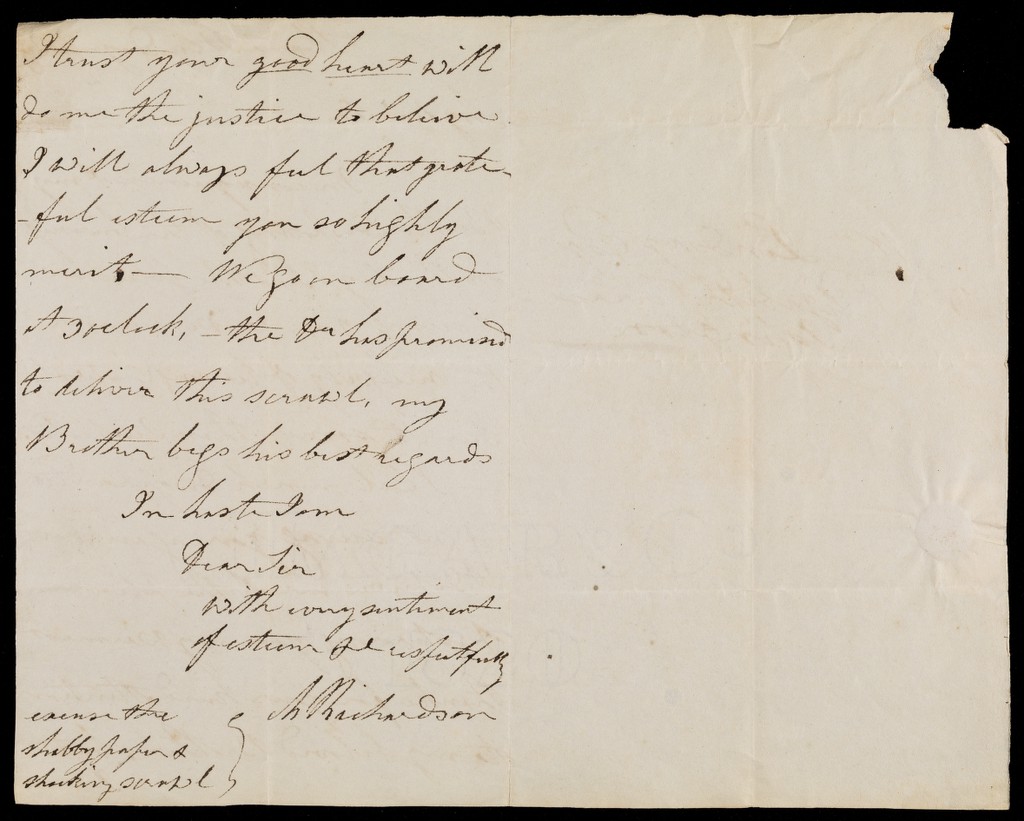 I trust your good heart will
do me the justice to believe
I will always feel that grate-
-ful esteem you so highly
merit, — We go on board
at 3 oclock, — the Dr has promised
to deliver this scrawl, my
Brother begs his best regards
In haste I am
Dear Sir
with every sentiment
of esteem & respectfully
Richardson
excuse the
shabby paper &
shocking scrawl